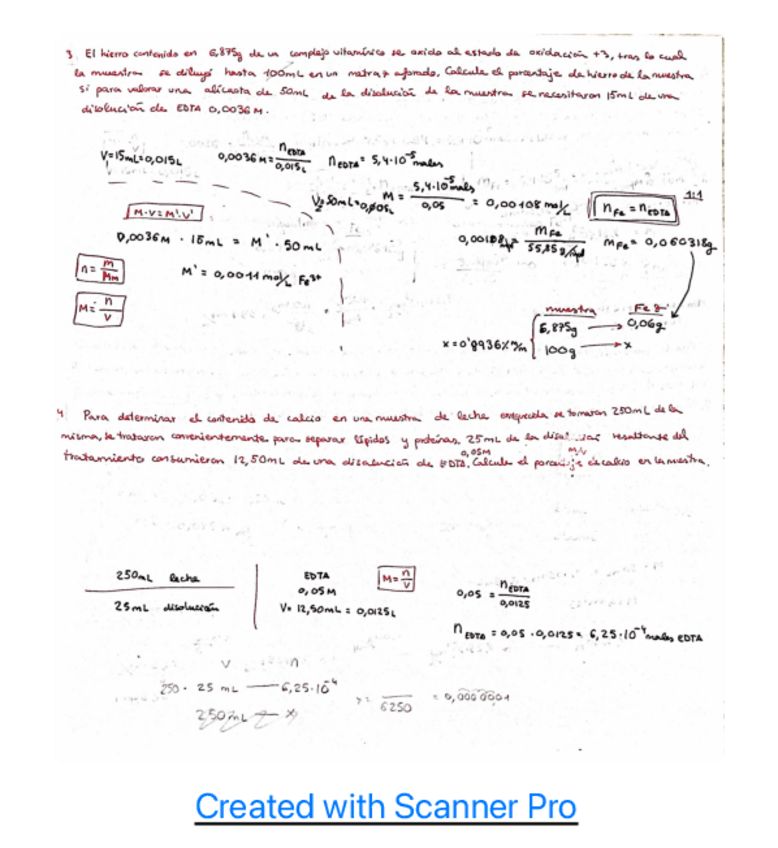 3 El hierro contenido en 6,875g de un complejo vitamínico se oxida al estado de oxidación +3, tras lo cual
la muestra se diluyó hasta 100mL en un matraz aforado. Calcula el porcentaje de hierro de la muestra
si para valorar una alícuota de 50mL de la disolución de la muestra se necesitaron 15mL de una
disolución de EDTA 0,0036M.
V=15mL=0,015L 0,0036M = nEDTA / 0,015L nEDTA = 5,4·10⁻⁵ moles
V=50mL=0,05L M = 5,4·10⁻⁵ moles / 0,05 = 0,00108 mol/L nFe = nEDTA 1:1
M·V=M'·V'
0,0036M · 15mL = M' · 50mL 0,00108 = mFe / 55,85 g/mol mFe = 0,060318g
n = m / Mm M' = 0,0011 mol/L Fe³⁺
M = n / V
muestra Fe
6,875g → 0,06g
x = 0'8936% m/m 100g → x
4 Para determinar el contenido de calcio en una muestra de leche se tomaron 250mL de la
misma, se trataron convenientemente para separar lípidos y proteínas. 25mL de la resultante del
0,05M m/v
tratamiento consumieron 12,50mL de una disolución de EDTA. Calcula el de calcio en la muestra.
250mL leche EDTA M = n / V
25mL disolución 0,05M 0,05 = nEDTA / 0,0125
V = 12,50mL = 0,0125L
nEDTA = 0,05 · 0,0125 = 6,25·10⁻⁴ moles EDTA
V n
250 · 25 mL — 6,25·10⁻⁴
6250 = 0,0000001
250mL — x
Created with Scanner Pro